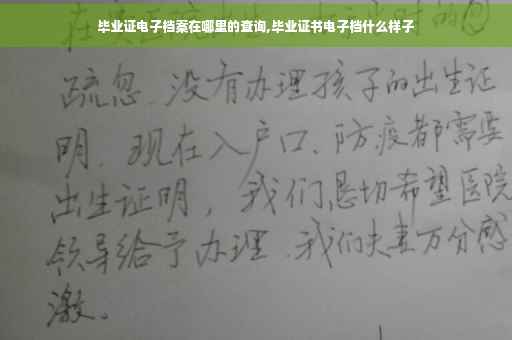 毕业证电子档案在哪里的查询,毕业证书电子档什么样子
疏忽.没有办理孩子的出生证
明.现在入户口、防疫都需要
出生证明,我们恳切希望医院
领导给予办理.我们夫妻万分感
激。